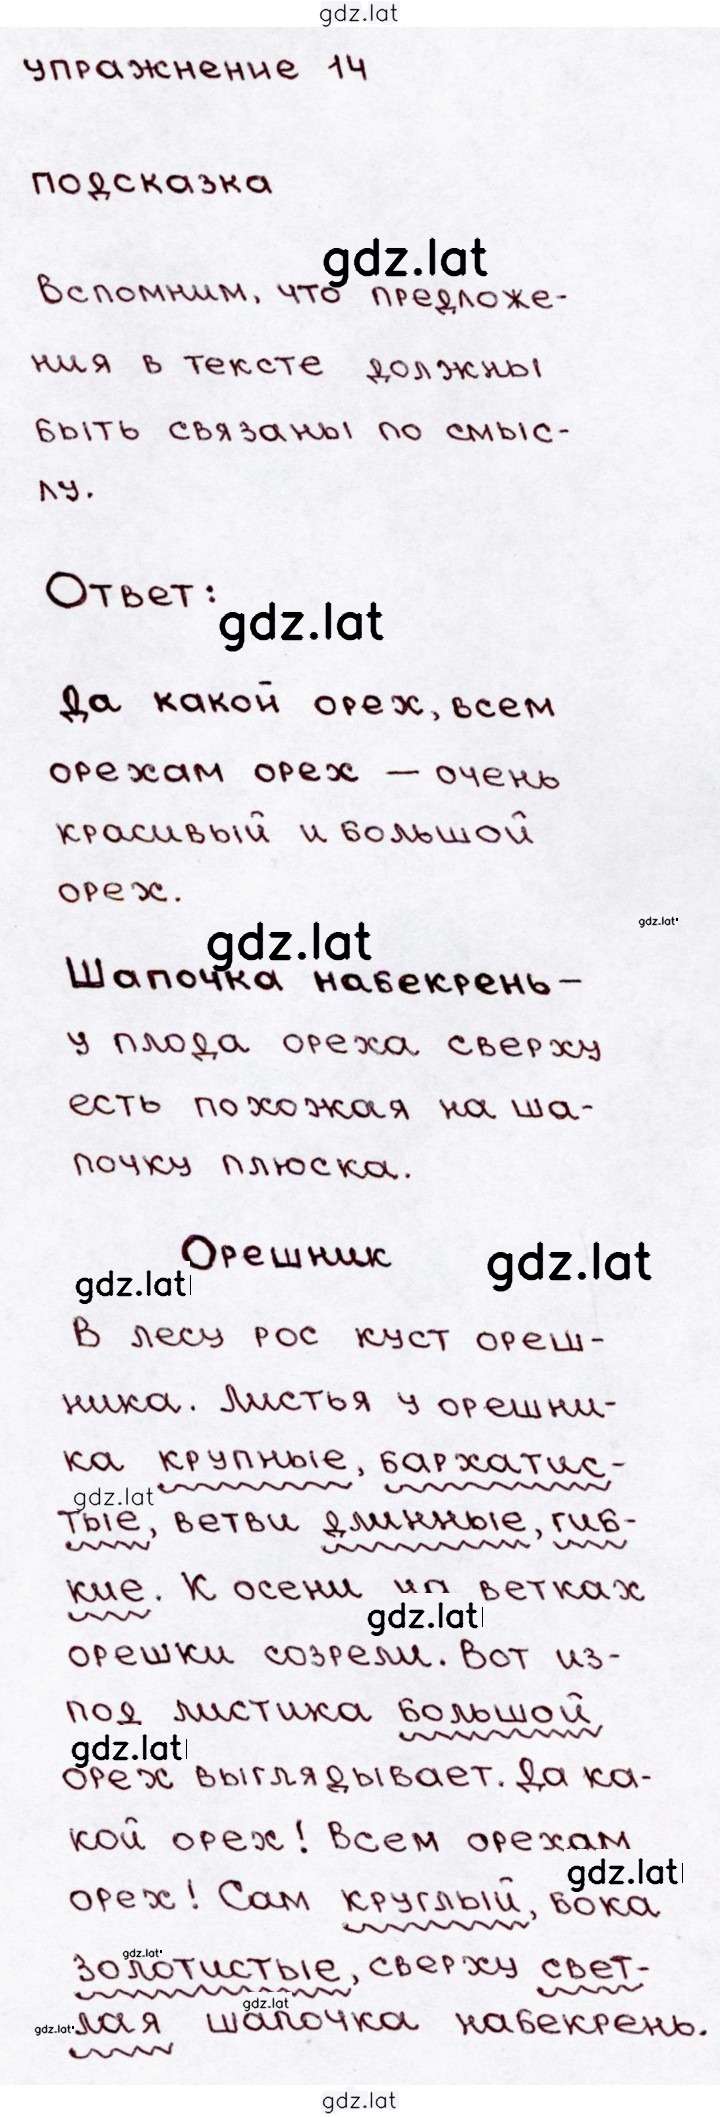 gdz.lat
упражнение 14
подсказка
gdz.lat
Вспомним, что предложе-
ния в тексте должны
быть связаны по смыс-
лу.
Ответ:
gdz.lat
Да какой орех, всем
орехам орех — очень
красивый и большой
орех.
gdz.lat
gdz.lat
Шапочка набекрень –
у плода ореха сверху
есть похожая на ша-
почку плюска.
Орешник
gdz.lat
gdz.lat
В лесу рос куст ореш-
ника. Листья у орешни-
ка крупные, бархатис-
gdz.lat
тые, ветви длинные, гиб-
кие. К осени на ветках
gdz.lat
орешки созрели. Вот из-
под листика большой
gdz.lat
орех выглядывает. Да ка-
кой орех! Всем орехам
gdz.lat
орех! Сам круглый, бока
gdz.lat
золотистые, сверху свет-
gdz.lat
gdz.lat
лая шапочка набекрень.
gdz.lat